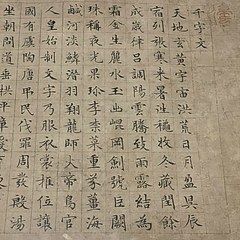 千字文
天地玄黃宇宙洪荒日月盈昃辰
宿列張寒來暑往秋收冬藏閏餘
成歲律呂調陽雲騰致雨露結為
霜金生麗水玉出崐岡劍號巨闕
珠稱夜光果珍李柰菜重芥薑海
鹹河淡鱗潛羽翔龍師火帝鳥官
人皇始制文字乃服衣裳推位讓
國有虞陶唐弔民伐罪周發殷湯
坐朝問道垂拱平章